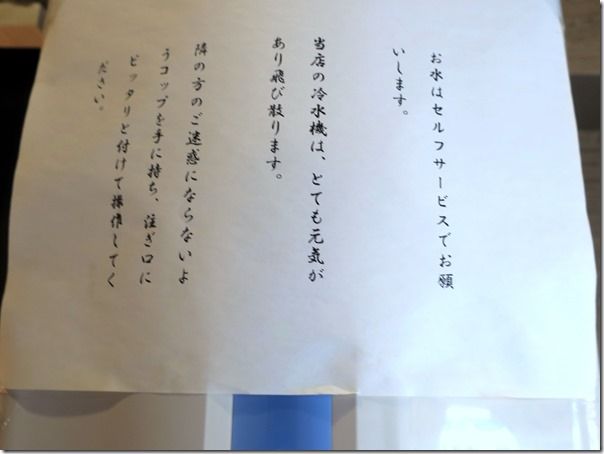 お水はセルフサービスでお願
いします。
当店の冷水機は、とても元気が
あり飛び散ります。
隣の方のご迷惑にならないよ
うコップを手に持ち、注ぎ口に
ピッタリと付けて操作してく
ださい。